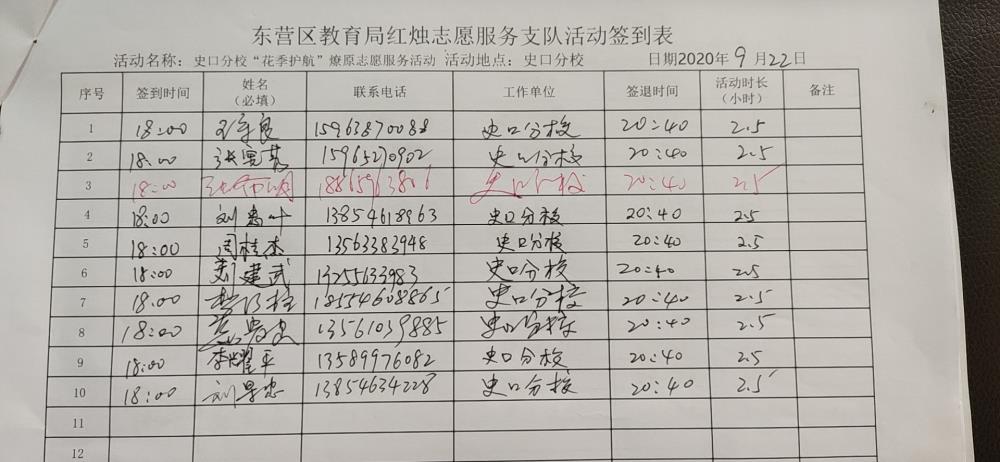 东营区教育局红烛志愿服务支队活动签到表
活动名称：史口分校“花季护航”燎原志愿服务活动 活动地点：史口分校 日期2020年9月22日
序号 签到时间 姓名（必填） 联系电话 工作单位 签退时间 活动时长（小时） 备注
1 18:00 15963870088 史口分校 20:40 2.5
2 18:00 15965270902 史口分校 20:40 2.5
3 18:00 史口分校 20:40 2.5
4 18:00 13854618963 史口分校 20:40 2.5
5 18:00 周桂杰 13563383948 史口分校 20:40 2.5
6 18:00 刘建武 13255633983 史口分校 20:40 2.5
7 18:00 18554608865 史口分校 20:40 2.5
8 18:00 13561039885 史口分校 20:40 2.5
9 18:00 李耀平 13589976082 史口分校 20:40 2.5
10 18:00 刘景忠 13854634228 史口分校 20:40 2.5
11
12